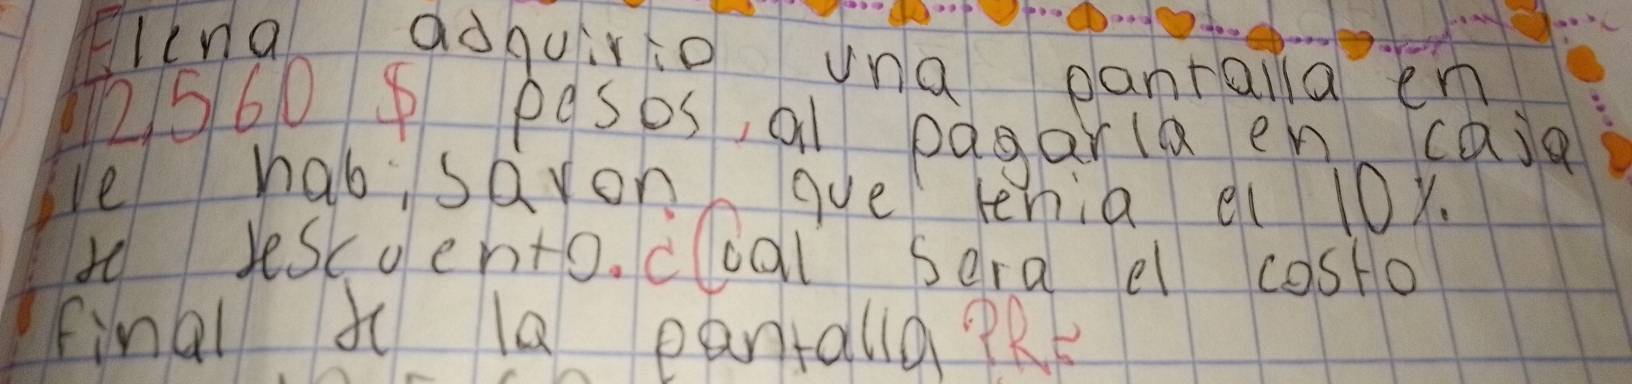 Elena adquirio una pantalla en
12,560 $ pesos, al pagarla en caja
le habisaron que tenia el 10%.
de descuento. ¿Cual sera el costo
final de la pantalla? R=